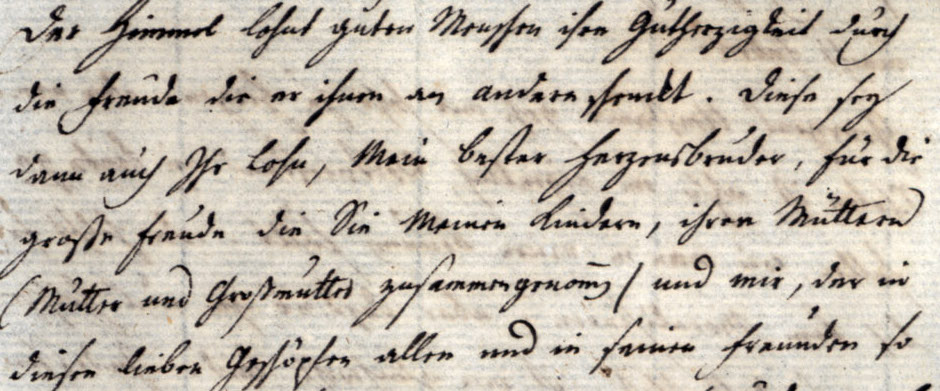 Der Himmel lohnt guten Menschen ihre Gutherzigkeit durch
die Freude die er ihnen an andern schenckt. Diese sey
dann auch Ihr Lohn, Mein bester Herzensbruder, für die
große Freude die Sie Meinen Kindern, ihren Müttern
(Mutter und Großmutter zusammengenom̅) und mir, der in
diesen lieben Geschöpfen allen und in seinen Freunden so